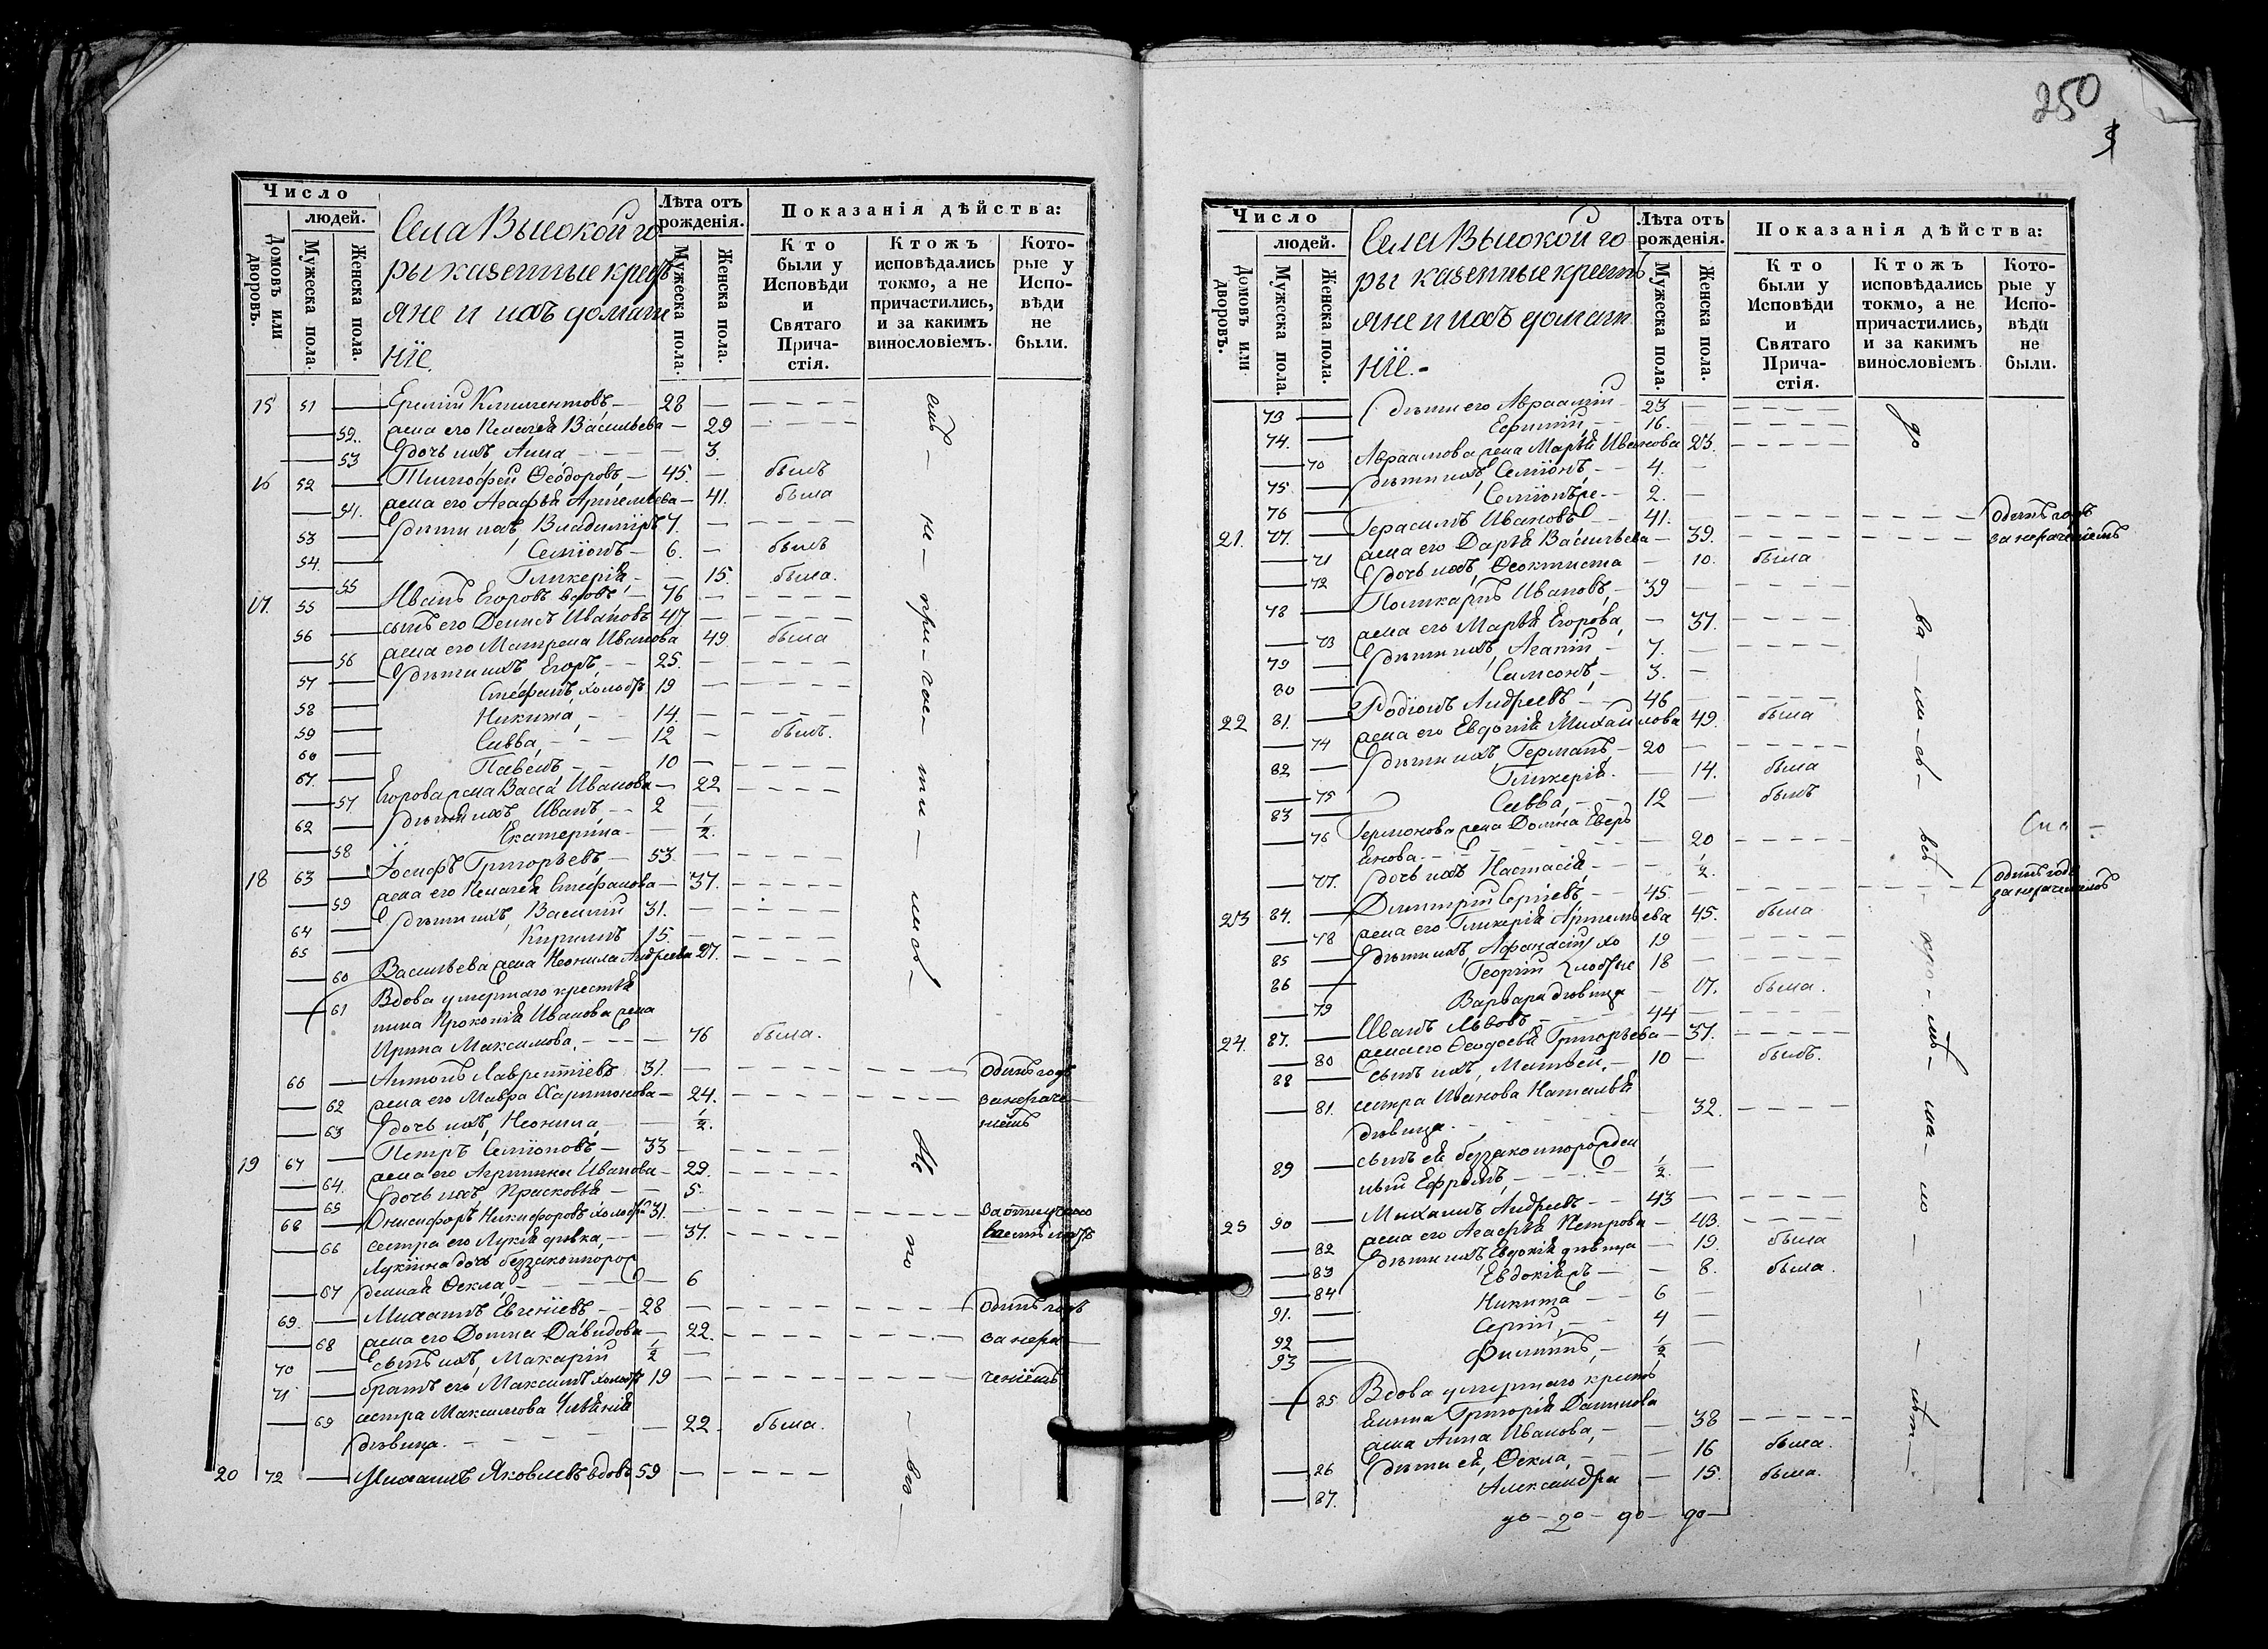 250
Число
людей.
Домовъ или дворовъ.
Мужеска пола.
Женска пола.
Села Высокой го
ры казенные крестъ
яне и ихъ домаш
нїе.
Лѣта отъ рожденія.
Мужеска пола.
Женска пола.
Показанія дѣйства:
Кто были у Исповѣди и Святаго Прича-стія.
Ктожъ исповѣдались токмо, а не причастились, и за какимъ винословіемъ.
Кото-рые у Испо-вѣди не были.
15 51 — 28 — — — — —
— 52. жена его Васильева — 29 — — — —
— 53 дочь ихъ Анна — 3.
16 52 — Тимофей Ѳеодоровъ — 45. — былъ
— 54. жена его Агафья Артемьева — 41. была
53 — дѣти ихъ, Владимїръ 7. — — — — —
54. — Семїонъ — 6. — былъ
— 55 Гликерїя — — 15. была.
17. 55 — Иванъ Егоровъ вдовъ — 76 — — — — —
56 — сынъ его Денисъ Ивановъ 47 — — — — —
— 56 жена его Матрона Иванова 49 была
57 — дѣти ихъ, Егоръ, — 25. — — — — —
58 — Стефанъ холостъ 19 — — — — —
59 — Никита, — 14. — — — — —
60 — Савва, — 12 — былъ.
61. — Павелъ — 10 —
— 57 Егорова жена Васса Иванова — 22 — — — —
62 — дѣти ихъ, Иванъ — 2 —
— 58 Екатерина — — 1/2.
18 63 — Іосифъ Григорьевъ — 53. — — — — —
— 59 жена его Стефанова — 37. — — — —
64 — дѣти ихъ, Василїй 31. — — — — —
65 — Кирилъ 15. — — — — —
— 60 Васильева жена Неонила Андреева 27. — — — —
— 61 Вдова умершаго крестья
нина Прокопїя Иванова жена
Ирина Максимова. — — — 76 была.
66 — Антонъ Лаврентїевъ 31. — — — — — — — — — Одинъ годъ
— 62 жена его Мавра Харитонова — 24. — — — — — — — — за нераче
— 63 дочь ихъ, Неонила — 1/2. нїемъ
19 67 — Петръ Семїоновъ — 33 — — — — —
— 64. жена его Агрипина Иванова — 29. — — — —
— 65 дочь ихъ, Прасковья — — 5.
68 — Онисифоръ Никифоровъ холостъ 31. — — — — — — — — —
— 66 сестра его Лукїя дѣвка, — 37. — — — —
Лукїина дочь беззаконнорож
— 67 денная Ѳекла, — — — 6
69. — Михаилъ Евгенїевъ — 28 — — — — — — — — — Одинъ годъ
— 68 жена его Домна Давидова — 22. — — — — — — — — за нера
70 — сынъ ихъ, Макарїй 1/2 —
71 — братъ его Максимъ холостъ 19 — — — — — — — — — ченїемъ
— 69 сестра Максимова
дѣвица. — — — 22. была.
20 72 — Михаилъ Яковлевъ вдовъ 59 — — — — —
Число
людей.
Домовъ или дворовъ.
Мужеска пола.
Женска пола.
Села Высокой го
ры казенные крестъ
яне и ихъ домаш
нїе.
Лѣта отъ рожденія.
Мужеска пола.
Женска пола.
Показанія дѣйства:
Кто были у Исповѣди и Святаго Прича-стія.
Ктожъ исповѣдались токмо, а не причастились, и за какимъ винословіемъ
Кото-рые у Испо-вѣди не были.
73 — дѣти его Авраамїй — 23 — — — — —
74. — Ефимїй, — 16. — — — — —
— 70 Авраамова жена Марья Иванова 23. — — — —
75 — дѣти ихъ, Семїонъ — 4. —
76 — Семїонъ же — 2. —
21. 77. — Герасимъ Ивановъ — 41. — — — — — — — — — Одинъ годъ
— 71 жена его Дарья Васильева — 39. — — — — — — — — за нераченїемъ
— 72 дочь ихъ, Ѳеоктиста — 10. была
78 — Поликарпъ Ивановъ, — 39 — — — — —
— 73 жена его Марья Егорова, — 37. — — — —
79 — дѣти ихъ, Агапїй — 7. — — — — —
80 — Самсонъ, — 3. —
22 81. — Родїонъ Андреевъ — 46 — — — — —
— 74 жена его Евдокїя Михаилова 49. была
82 — дѣти ихъ, Германъ — 20 — — — — —
— 75 Гликерїя. — 14. была
83 — Савва, — 12 — былъ
— 76 Германова жена Домна
— — — 20
— 77. дочь ихъ Настасїя — — 1/2.
23 84. — Димитрїй Сергїевъ — 45. — — — — — — — — — Одинъ годъ за нераченїемъ
— 78 жена его Гликерїя Артемьева 45. была
85 — дѣти ихъ, Афанасїй хо 19 — — — — —
86 — Георгїй лостые 18 — — — — —
— 79 Варвара дѣвица — 17. была.
24. 87. — Иванъ Львовъ — 44 — — — — —
— 80 жена его Ѳеодосья Григорьева — 37. — — — —
88 — сынъ ихъ, Матвей, — 10 — былъ.
— 81. сестра Иванова Наталья
дѣвица. — — — 32. — — — —
89 — сынъ ея беззаконнорожден
ный Ефремъ, — — — 1/2. —
25 90 — Михаилъ Андреевъ — 43 — — — — —
— 82 жена его Агафья Петрова — 43. — — — —
— 83 дѣти ихъ Евдокїя дѣвица — 19. была
— 84 Евдокїя жъ — — 8. была.
91. — Никита — 6 —
92 — Сергїй, — 4 —
93 — Филипъ, — 1/2 —
— 85 Вдова умершаго кресть
янина Григорїя Данилова
жена Анна Иванова, — — 38 — — — —
— 86 дѣти ея, Ѳекла, — — 16 была.
— 87. Александра — 15. была.